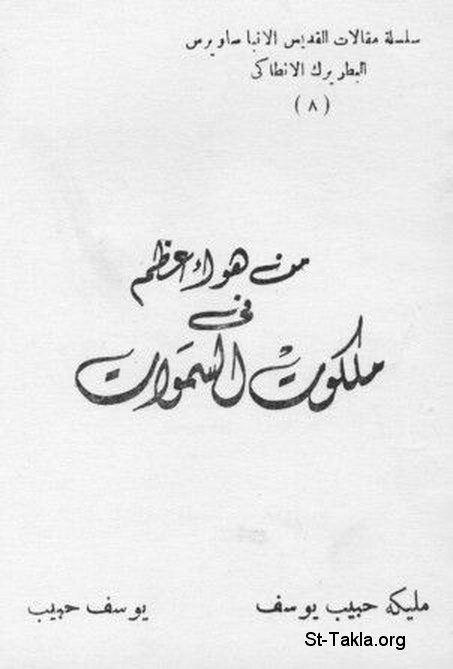 سلسلة مقالات القديس الانبا ساويرس
البطريرك الانطاكى
( ٨ )
من هو اعظم
فى
ملكوت السموات
مليكه حبيب يوسف
يوسف حبيب
St-Takla.org